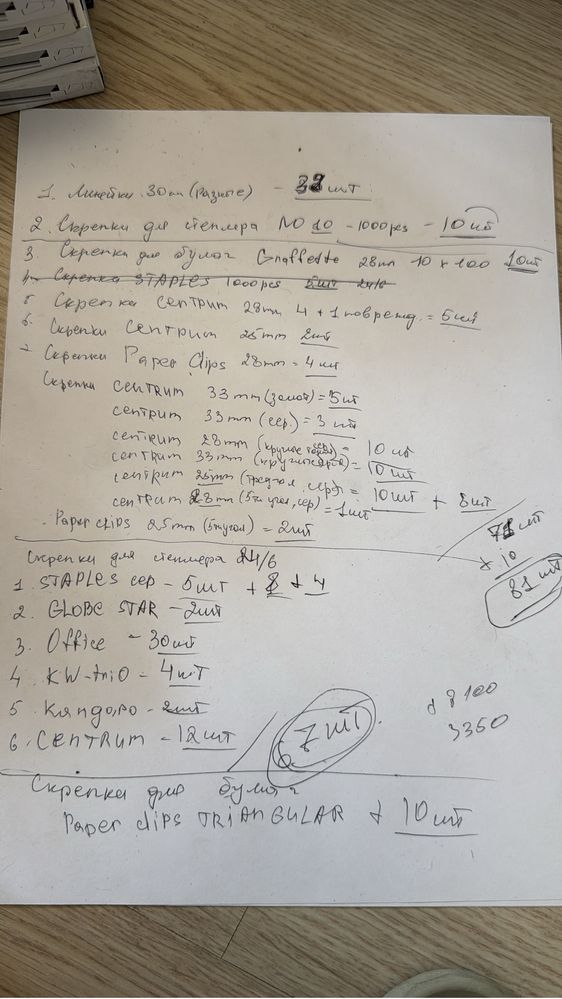 1. Линейки 30см (разные) - 32 шт
2. Скрепки для степлера NO 10 - 1000 pcs - 10 шт
3. Скрепки для бумаг Graffette 28mm 10 x 100 10шт
4. Скрепка STAPLES 1000 pcs 5шт 24/6
5 Скрепка Centrum 28mm 4 + 1 поврежд. = 5шт
6. Скрепки Centrum 25mm 2шт
7 Скрепки Paper Clips 28mm = 4 шт
Скрепки CENTRUM 33 mm (золот) = 5 шт
centrum 33 mm (сер.) = 3 шт
centrum 28 mm = 10 шт
centrum 33 mm = 10 шт
centrum 25mm = 10 шт + 8 шт
centrum 28 mm (5ти угол, сер) = 1шт
- Paper clips 25mm (5тиугол) = 2шт
71 шт
+ 10
81 шт
Скрепки для степлера 24/6
1. STAPLES сер - 5шт + 8 + 4
2. GLOBE STAR - 2шт
3. Office - 30шт
4. KW-triO - 4шт
5. Кяндоро - 2шт
6. CENTRUM - 12шт
67 шт.
8100
3350
Скрепки для бумаг
Paper clips TRIANGULAR + 10 шт